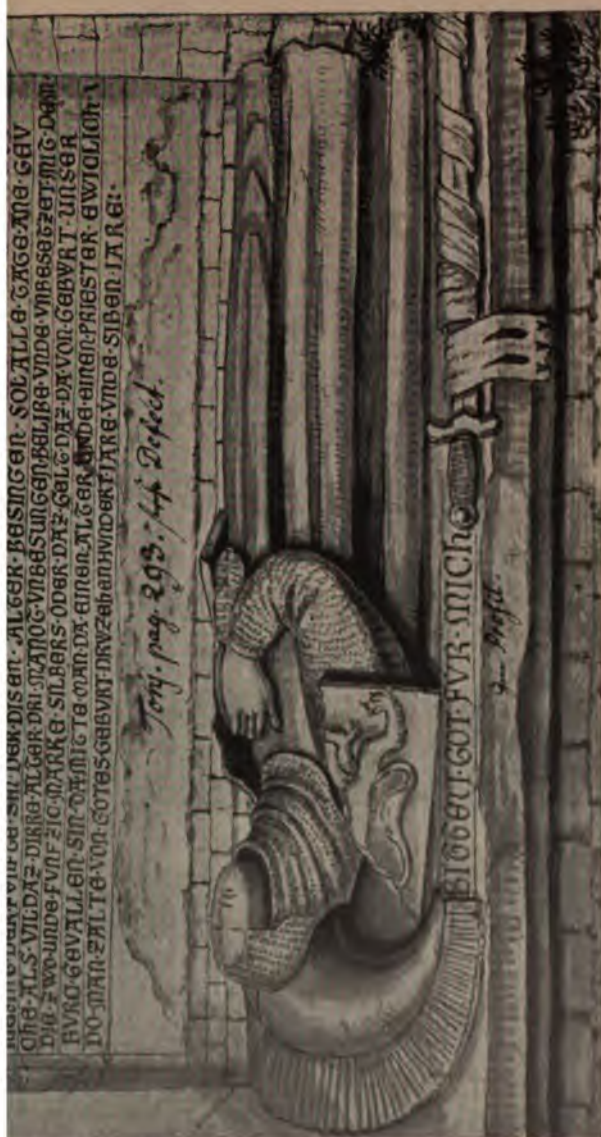 DER FVNFTE SIN DER DISEN ALTER BESINGEN · SOL ALLE TAGE ANE GEV
CHE · ALS VIL DAZ DIRRE ALTER DRI MANOT VNBESUNGEN BELIBE VNDE VNBESETZET MIT DEM
DIE ZWO UNDE FVNFZIC MARKE SILBERS ODER DAZ GELT DAZ DA VON GEBVRT UNSER
BVRC GEVALLEN SIN DA MITE MAN DA EINEN ALTER VNDE EINEN PRIESTER EWICLICH
DO MAN ZALTE VON GOTES GEBVRT DRVZEHEN HVNDERT JARE VNDE SIBEN JARE
pag. 293. Defect.
GOT · FVR · MICH
Profil.